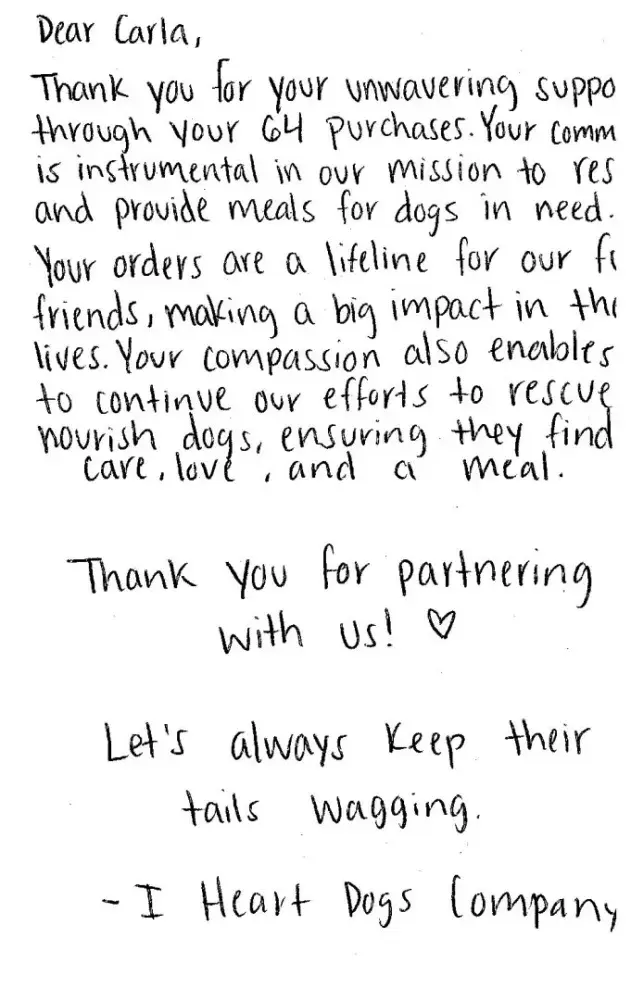 Dear Carla,
Thank you for your unwavering suppo
through your 64 purchases. Your comm
is instrumental in our mission to res
and provide meals for dogs in need.
Your orders are a lifeline for our f
friends, making a big impact in the
lives. Your compassion also enables
to continue our efforts to rescue
nourish dogs, ensuring they find
care, love, and a meal.
Thank you for partnering
with us! ♡
Let's always keep their
tails wagging.
- I Heart Dogs Company